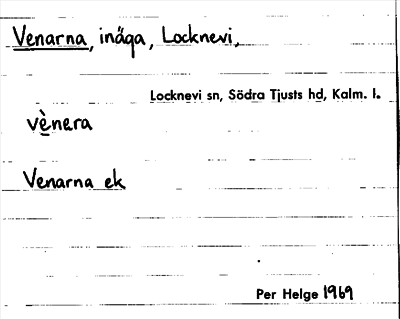 Venarna, inäga, Locknevi,
Locknevi sn, Södra Tjusts hd, Kalm. l.
vènera
Venarna ek
Per Helge 1969